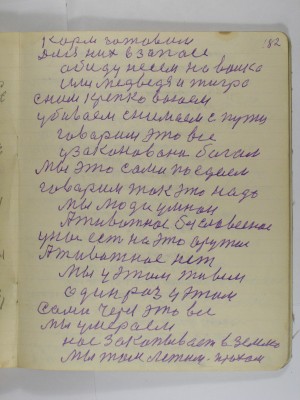 182
корм готовим
для них в запасе
обиду несем на волка
или медведя и тигра
с ним крепко воюем
убиваем снимаем с пути
говорим это все
узаконовано богам
мы это сами поедаем
говорим так это надо
мы люди умном
а животное бусловенное
у нас ест на это оружие
а животное нет
мы у этом живем
один раз у этом
сами через это все
мы умераем
нас закапивает в землю
мы там лежим